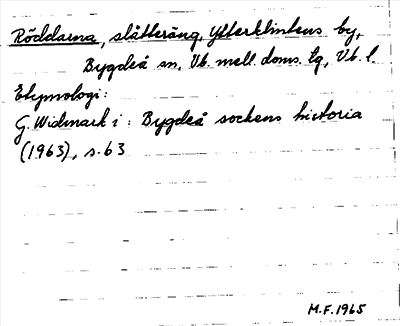 Röddarna, slåtteräng, Ytterklintens by,
Bygdeå sn, Vb. mell. doms. tg, Vb. l.
Etymologi:
G. Widmark i: Bygdeå sockens historia
(1963), s. 63
M.F. 1965